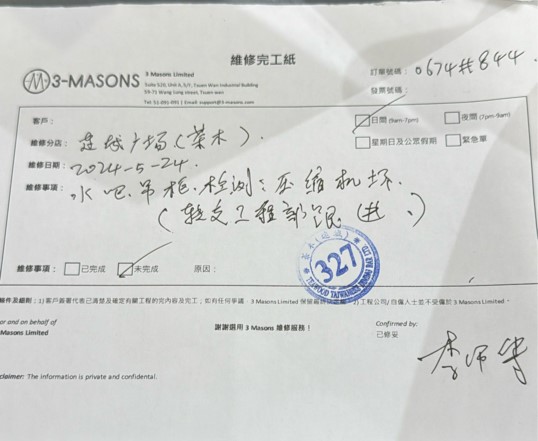 維修完工紙
3-MASONS
3 Masons Limited
Suite 520, Unit b, 5/F, Tsuen Wan Industrial Building
59-71 Wang Lung street, Tsuen wan
Email support@3-masons.com
訂單號碼： 0674共844
發票號碼：
客戶：
日間 (9am-7pm) 夜間 (7pm-9am)
維修分店： 荃城广场(茶木).
星期日及公眾假期 緊急單
維修日期： 2024-5-24.
維修事項： 水吧吊柜.检测：压缩机坏.
(转交工程部跟进.)
維修事項： 已完成 未完成 原因：
327
條件及細則：1) 客戶簽署代表已清楚及確定有關工程的完內容及完工；如有任何爭議，3 Masons Limited 保留最終 2) 工程公司/ 自僱人士並不受僱於 3 Masons Limited。
or and on behalf of
Masons Limited
謝謝選用 3 Masons 維修服務！
Confirmed by:
已修妥
李师傅
claimer: The information is private and confidental.